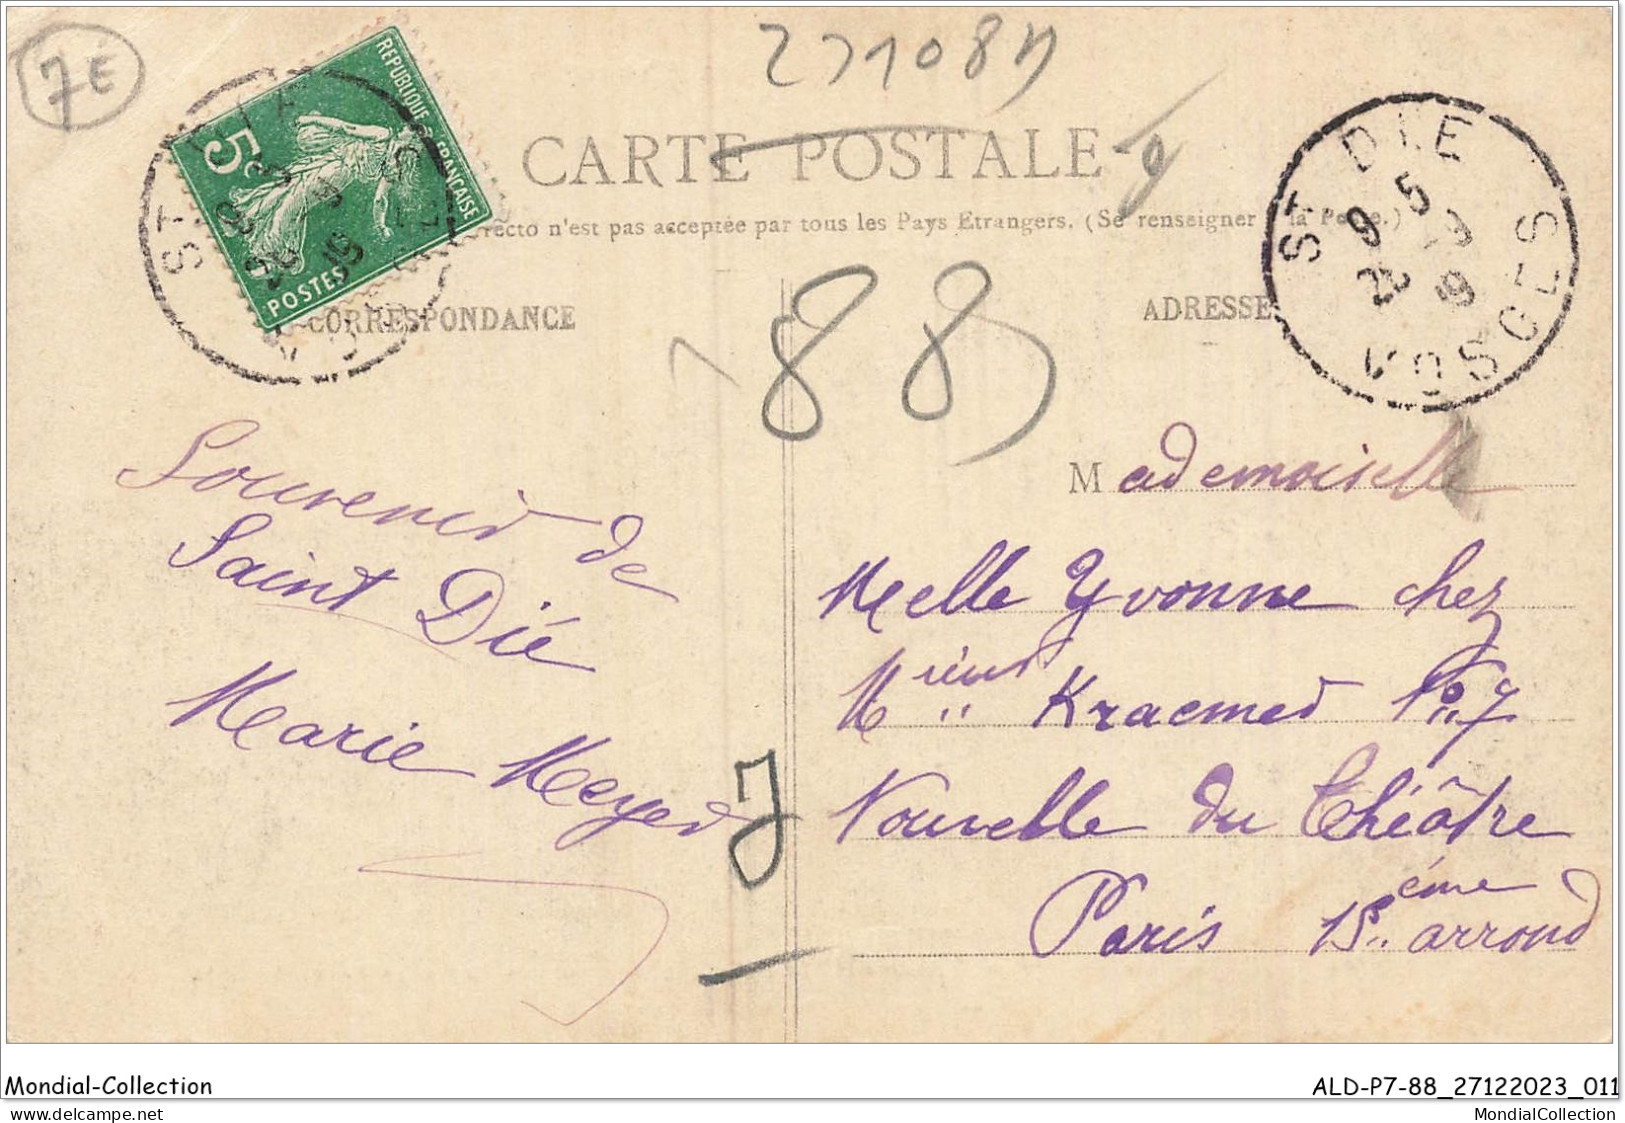 7€
27108M
RÉPUBLIQUE FRANÇAISE
5c
POSTES
ST DIE
VOSGES
CARTE POSTALE
recto n'est pas acceptée par tous les Pays Etrangers. (Se renseigner à la Poste.)
CORRESPONDANCE
ADRESSE
ST DIE
9 5
VOSGES
88
Souvenir de
Saint Dié
Marie Meyer
J
Mademoiselle
Melle Yvonne chez
Mrieur Kraemer
Nouvelle du Théâtre
Paris 15ème arrond
Mondial-Collection
ALD-P7-88_27122023_011
delcampe.net
MondialCollection